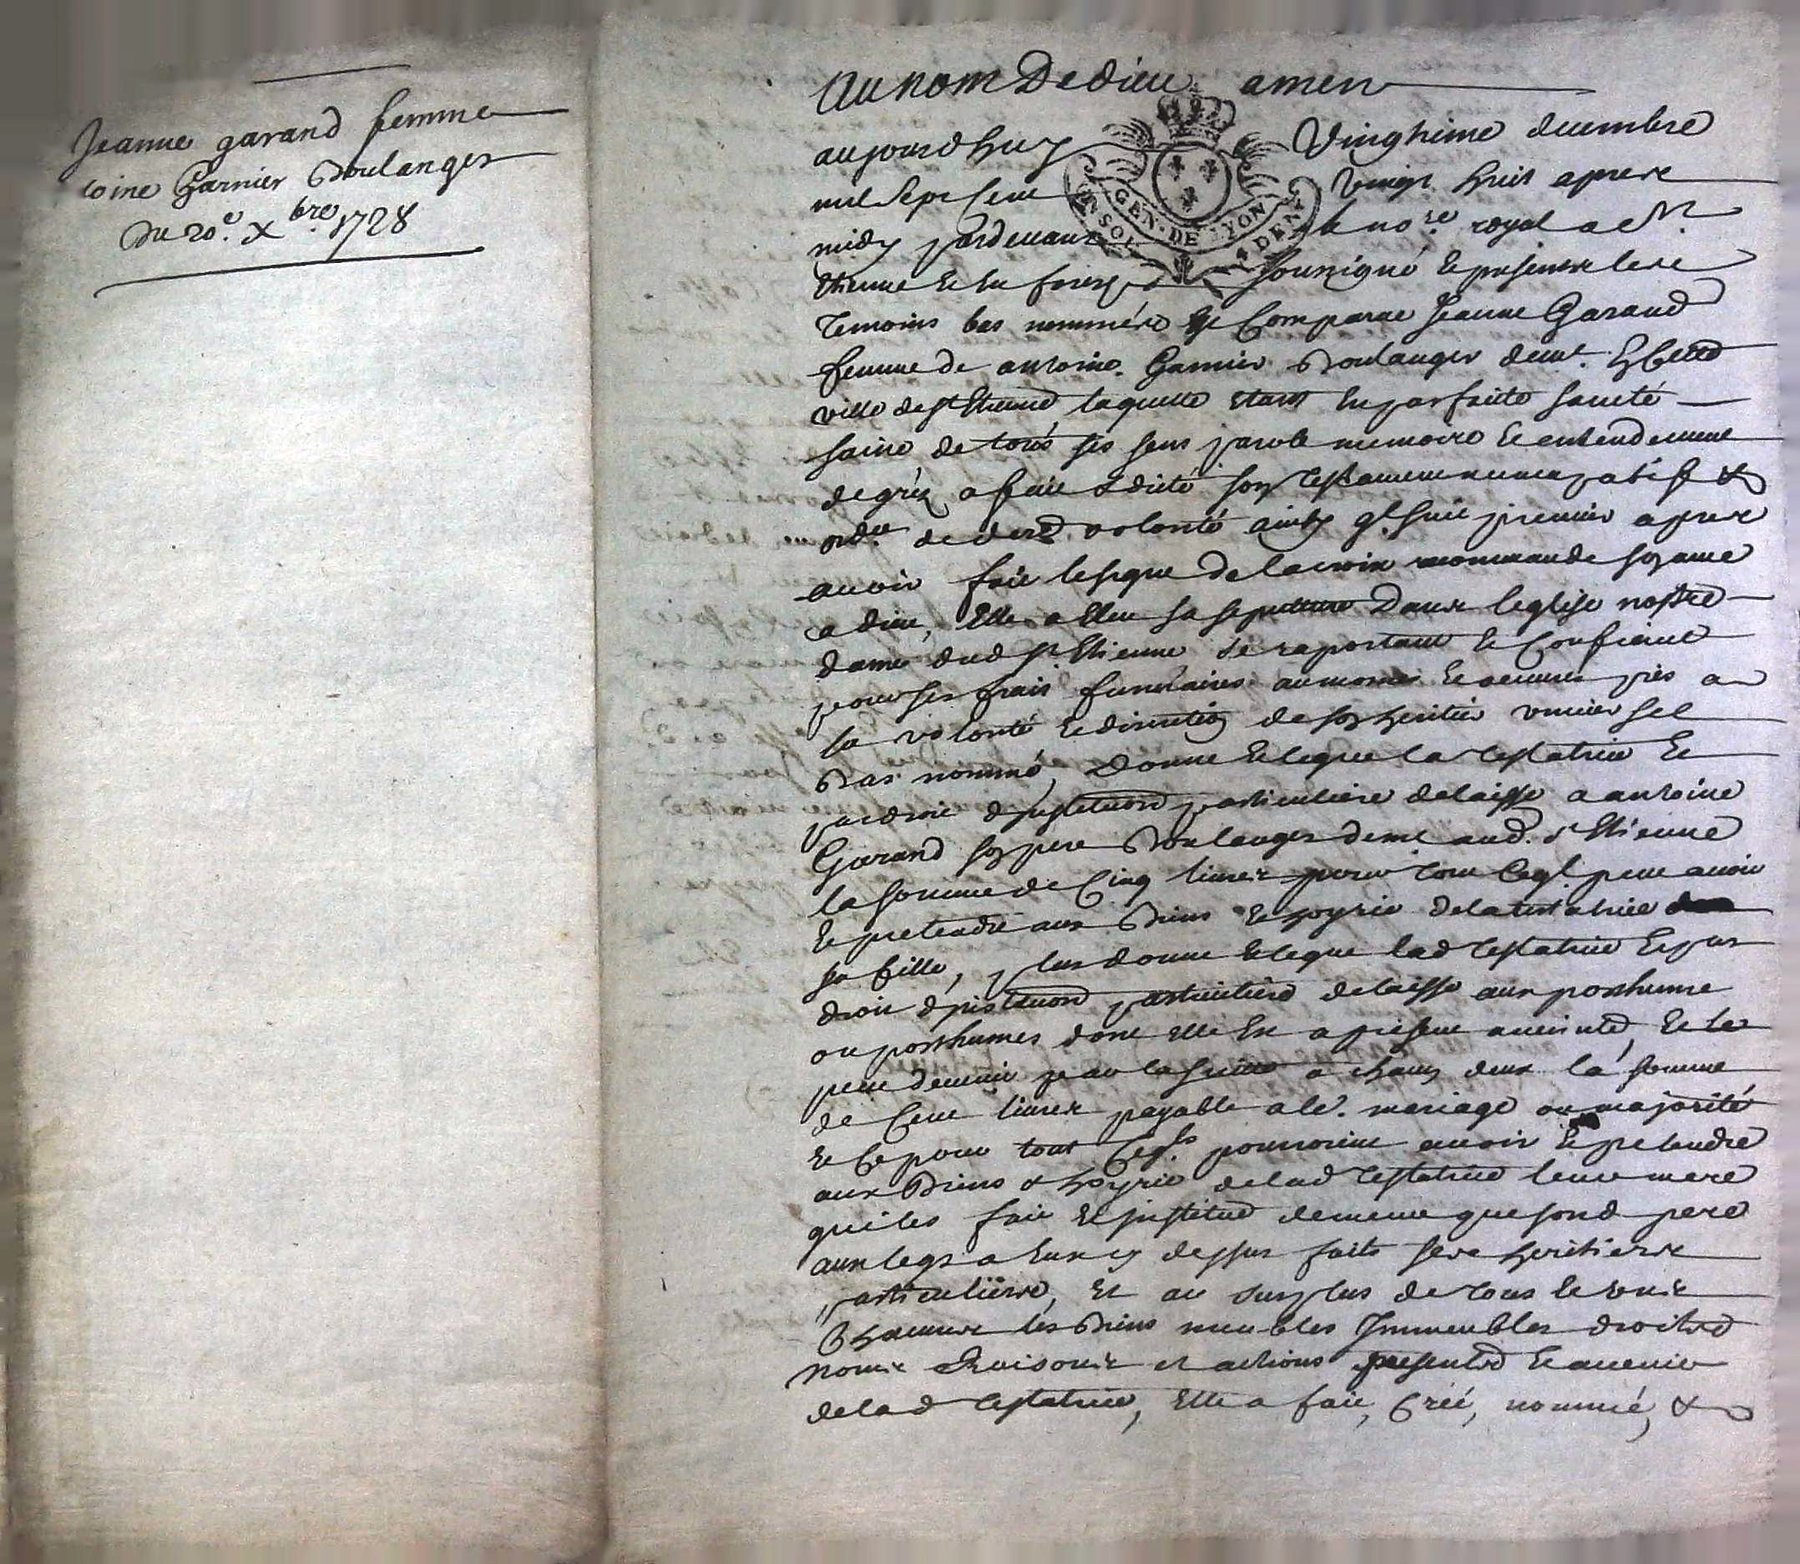 Jeanne garand femme
toine Garnier Boulanger
Du 20e. Xbre. 1728
Au nom De dieu amen
aujourdhuy Vingtieme decembre
mil Sept Cent Vingt huit apres
midy pardevant le nore. royal a St.
Etienne et en forest GEN · DE LYON soussigné et presents les
Temoins bas nommés est Comparue Jeanne Garand
femme de antoine Garnier Boulanger demt. en cette
ville de st Etienne laquelle etant en parfaite santé
saine de tous ses sens parole memoire et entendement
de gré a fait & dicté son testament nuncupatif &
ordce de dere. volonté ainsy q. suit premier apres
avoir fait le signe de la croix recommandé son ame
a dieu, Elle a Eleu sa sepulture Dans leglise nostre
dame dud St Etienne se raportant et Confiant
pour ses frais funeraires aumones et oeuvres pies a
la volonté et direction de son heritier universel
Bas nommé, Donne et legue la testatrice et
par droit d'institution particuliere delaisse a antoine
Garand son pere Boulanger demt aud. st Etienne
la somme de Cinq livres pour tout Ceq. peut avoir
et pretendre aux Biens et hoyrie de la testatrice
sa fille, plus donne et legue lad testatrice et par
droit d'institution particuliere delaisse aux posthume
ou posthumes dont elle est a present enceinte, et le
peut devenir par la suitte a chacun deux la somme
de Cent livres payable a le. mariage ou majorité
et Ce pour tout Ceqls pourroient avoir et pretendre
aux Biens & hoyrie de lad testatrice leur mere
qui les fait et institue de meme que sond pere
aux legs a Eux cy dessus faits ses heritiers
particuliers, Et au surplus de tous les uns et
Chacuns les Biens meubles Immeubles droits
noms Raisons et actions presents et avenir
de lad testatrice, Elle a fait, Créé, nommé, &